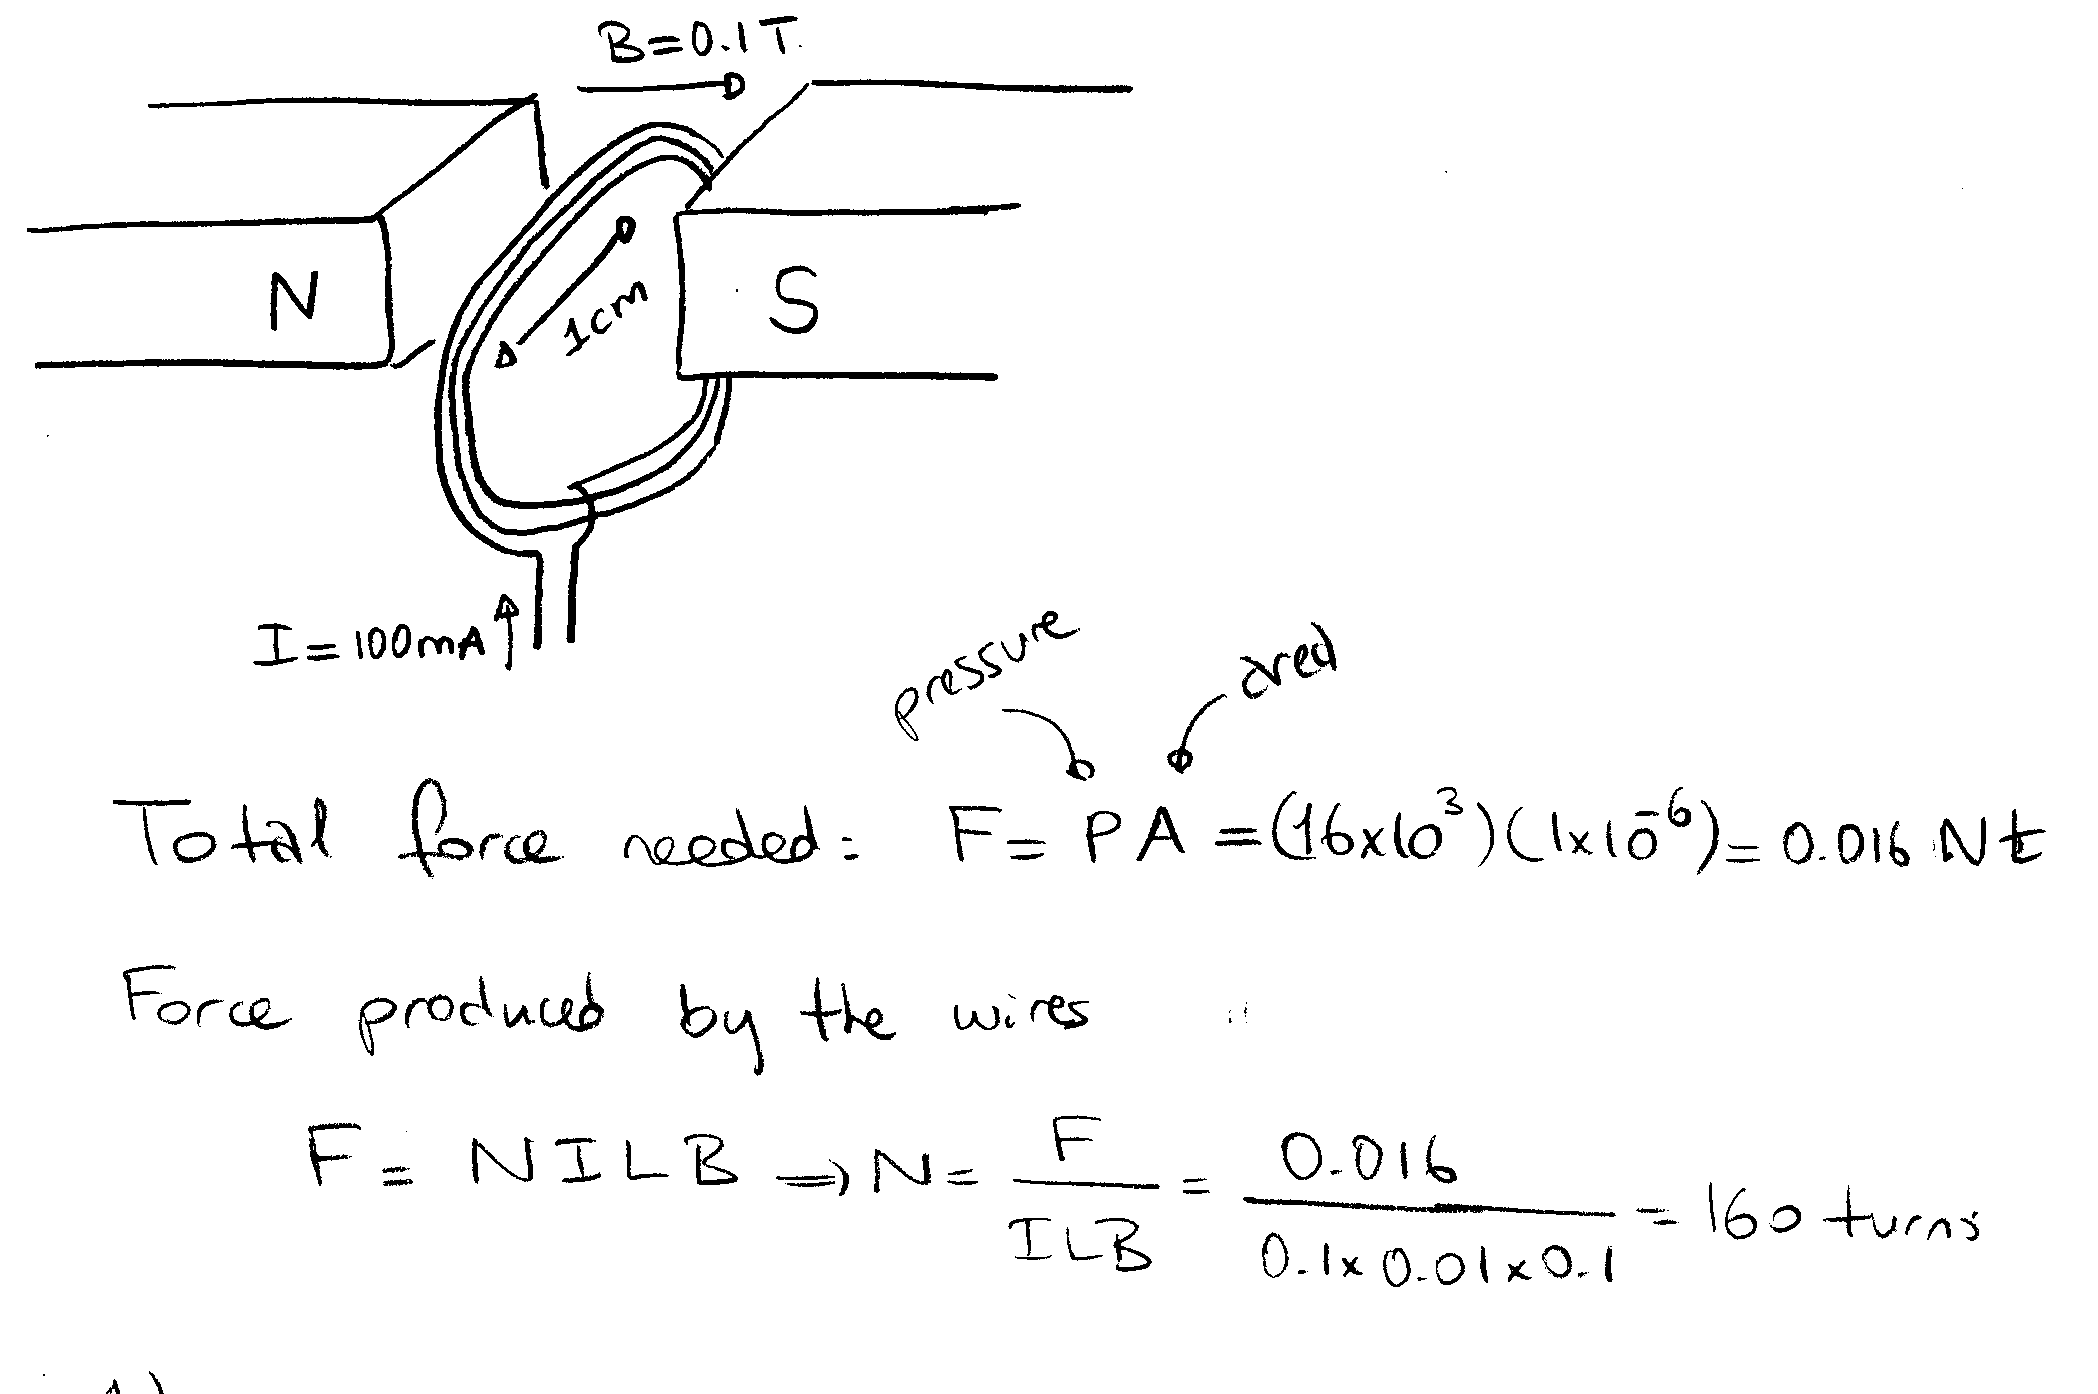 B=0.1T
N
1cm
S
I=100mA
pressure
area
Total force needed: F= PA =(16x10³)(1x10⁻⁶)= 0.016 Nt
Force produced by the wires
F= NILB ⇒ N= F/ILB = 0.016/0.1x0.01x0.1 = 160 turns